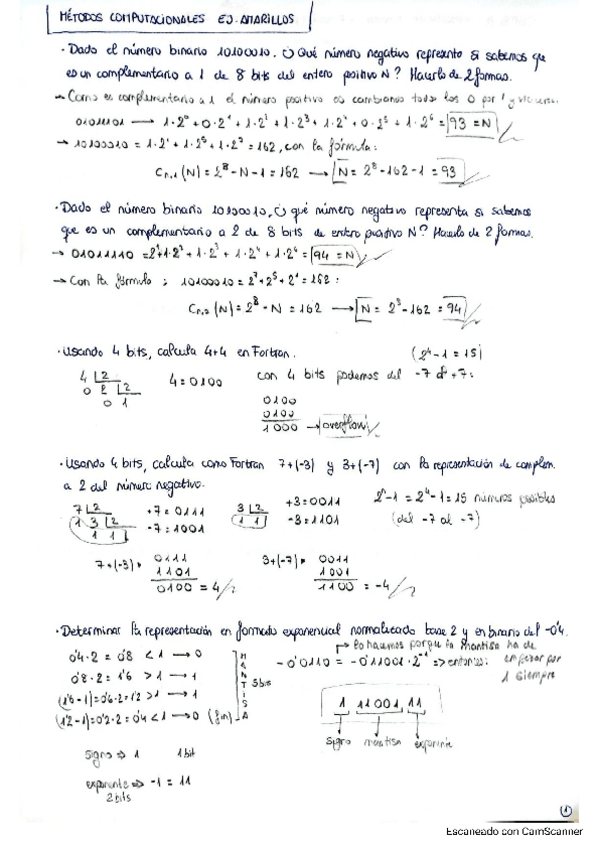 MÉTODOS COMPUTACIONALES EJ. AMARILLOS
· Dado el número binario 10100010. ¿Qué número negativo representa si sabemos que
es un complementario a 1 de 8 bits del entero positivo N? Hacerlo de 2 formas.
→ Como es complementario a 1 el número positivo es cambiamos todos los 0 por 1 y viceversa.
01011101 → 1·2⁰ + 0·2¹ + 1·2² + 1·2³ + 1·2⁴ + 0·2⁵ + 1·2⁶ = 93 = N
→ 10100010 = 1·2¹ + 1·2⁵ + 1·2⁷ = 162, con la fórmula:
Cn,1 (N) = 2⁸ - N - 1 = 162 → N = 2⁸ - 162 - 1 = 93
· Dado el número binario 10100010, ¿qué número negativo representa si sabemos
que es un complementario a 2 de 8 bits de entero positivo N? Hacerlo de 2 formas.
→ 01011110 = 2¹ + 1·2² + 1·2³ + 1·2⁴ + 1·2⁶ = 94 = N
→ Con la fórmula: 10100010 = 2⁷ + 2⁵ + 2¹ = 162:
Cn,2 (N) = 2⁸ - N = 162 → N = 2⁸ - 162 = 94
· Usando 4 bits, calcula 4+4 en Fortran. (2⁴ - 1 = 15)
4 |2 4 = 0100 con 4 bits podemos del -7 al +7:
0 2 |2 0100
0 1 0100
1000 → overflow
· Usando 4 bits, calcula como Fortran 7+(-3) y 3+(-7) con la representación de complem.
a 2 del número negativo.
7 |2 +7 = 0111 3 |2 +3 = 0011 2ⁿ - 1 = 2⁴ - 1 = 15 números posibles
1 3 |2 -7 = 1001 1 1 -3 = 1101 (del -7 al -7)
1 1
7+(-3) 0111 3+(-7) 0011
1101 1001
0100 = 4 1100 = -4
· Determinar la representación en formato exponencial normalizado base 2 y en binario del -0'4.
lo hacemos porque la mantisa ha de
0'4·2 = 0'8 < 1 → 0 -0'0110 = -0'11001·2⁻¹ => entonces: empezar por
0'8·2 = 1'6 > 1 → 1 1 siempre
(1'6-1) = 0'6·2 = 1'2 > 1 → 1
(1'2-1) = 0'2·2 = 0'4 < 1 → 0 (fin)
MANTISA 5bits
1 11001 11
signo mantisa exponente
signo => 1 1bit
exponente => -1 = 11
2bits
1
Escaneado con CamScanner